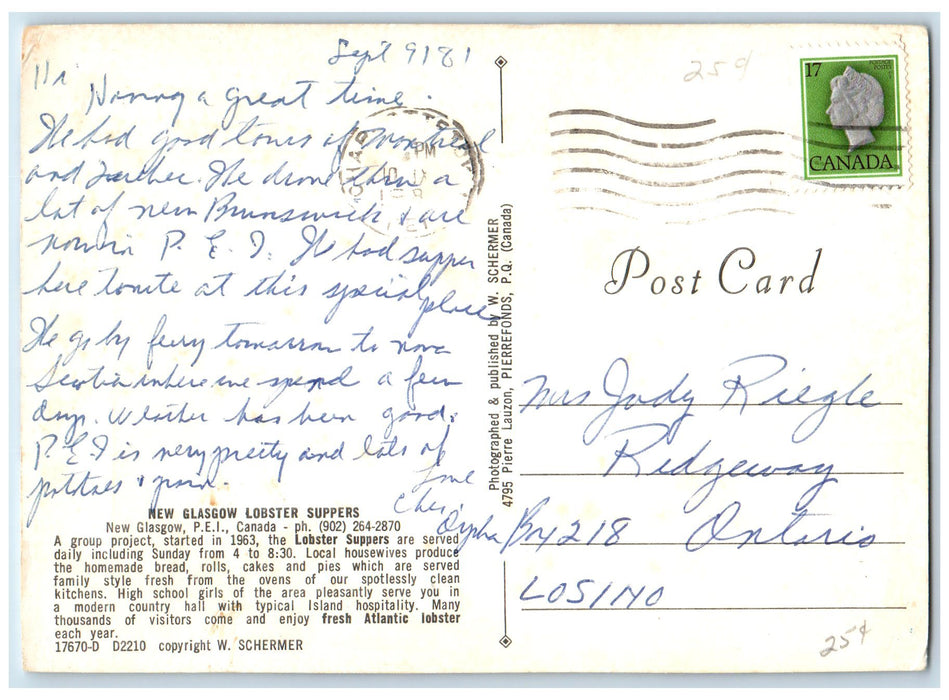 Sept 9/81
Hi
Having a great time.
We had good tours of Montreal
and Quebec. We drove thru a
lot of New Brunswick & are
now in P. E. I. We had supper
here tonite at this special place
We go by ferry tomorrow to Nova
Scotia where we spend a few
days. Weather has been good.
P.E.I is very pretty and lots of
potatoes &
Love
Orpha
NEW GLASGOW LOBSTER SUPPERS
New Glasgow, P.E.I., Canada - ph. (902) 264-2870
A group project, started in 1963, the Lobster Suppers are served
daily including Sunday from 4 to 8:30. Local housewives produce
the homemade bread, rolls, cakes and pies which are served
family style fresh from the ovens of our spotlessly clean
kitchens. High school girls of the area pleasantly serve you in
a modern country hall with typical Island hospitality. Many
thousands of visitors come and enjoy fresh Atlantic lobster
each year.
17670-D D2210 copyright W. SCHERMER
Photographed & published by W. SCHERMER
4795 Pierre Lauzon, PIERREFONDS, P.Q. (Canada)
25¢
17
POSTAGE
POSTES
CANADA
PM
Post Card
Mrs Judy Riegle
Ridgeway
Bx 218 Ontario
LOS1N0
25¢